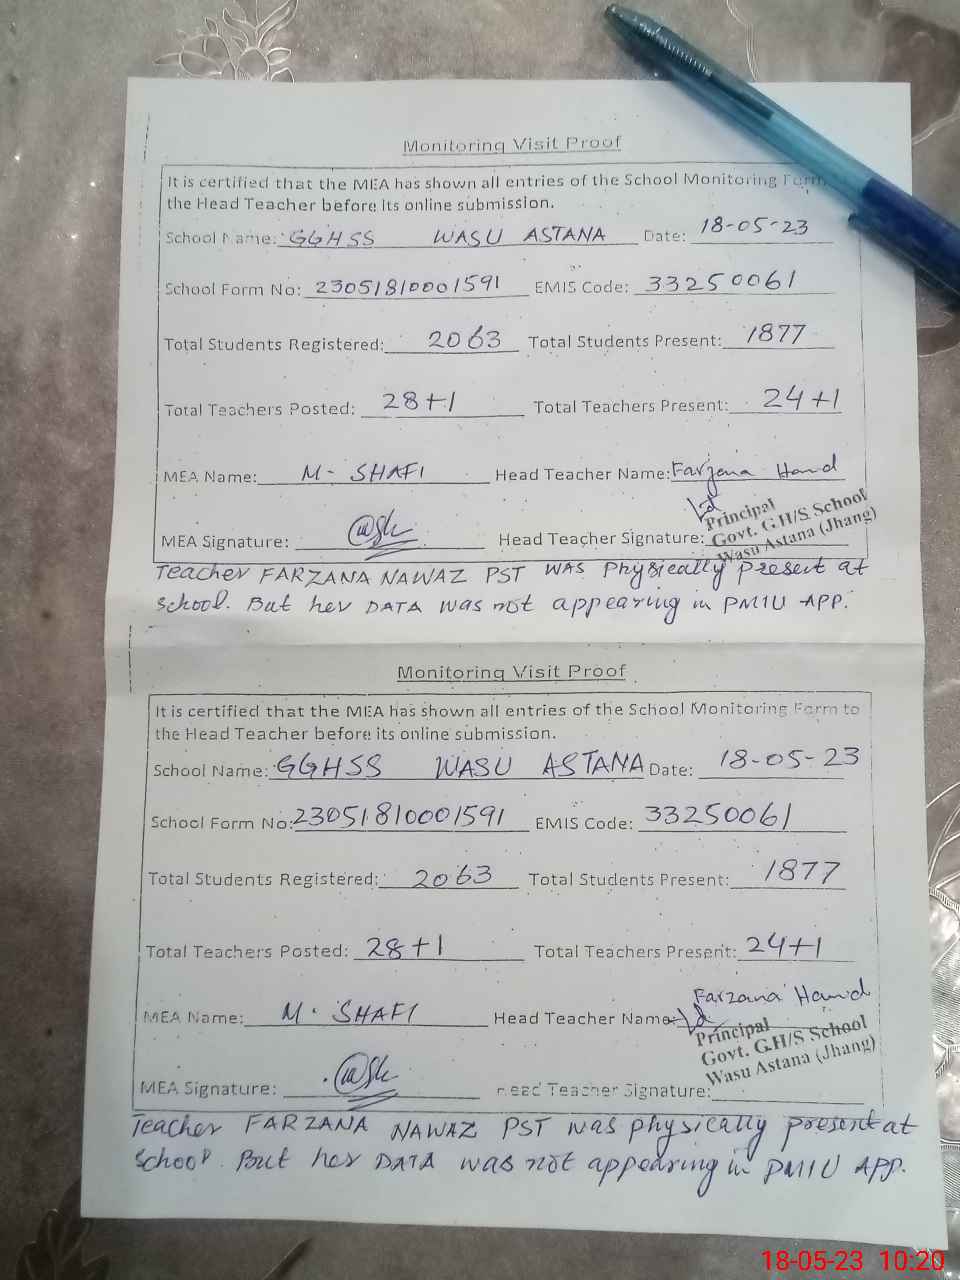 Monitoring Visit Proof
It is certified that the MEA has shown all entries of the School Monitoring Form
the Head Teacher before its online submission.
School Name: GGHSS WASU ASTANA Date: 18-05-23
School Form No: 23051810001591 EMIS Code: 33250061
Total Students Registered: 2063 Total Students Present: 1877
Total Teachers Posted: 28+1 Total Teachers Present: 24+1
MEA Name: M. SHAFI Head Teacher Name: Farzana Hamid
MEA Signature: Head Teacher Signature:
Principal
Govt. G.H/S. School
Wasu Astana (Jhang)
Teacher FARZANA NAWAZ PST WAS Physically present at
school. But her DATA was not appearing in PMIU APP.
Monitoring Visit Proof
It is certified that the MEA has shown all entries of the School Monitoring Form to
the Head Teacher before its online submission.
School Name: GGHSS WASU ASTANA Date: 18-05-23
School Form No: 23051810001591 EMIS Code: 33250061
Total Students Registered: 2063 Total Students Present: 1877
Total Teachers Posted: 28+1 Total Teachers Present: 24+1
MEA Name: M. SHAFI Head Teacher Name: Farzana Hamid
Principal
Govt. G.H/S School
Wasu Astana (Jhang)
MEA Signature: Head Teacher Signature:
Teacher FARZANA NAWAZ PST was physically present at
school. But her DATA was not appearing in PMIU APP.
18-05-23 10:20